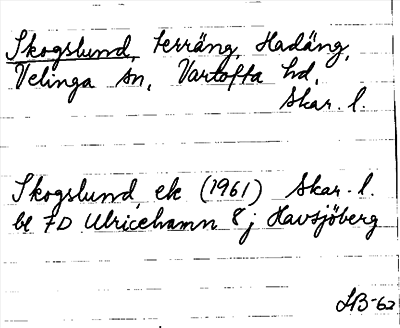 Skogslund, terräng, Hadäng,
Velinga sn, Vartofta hd,
Skar. l.
Skogslund ek (1961) Skar. l.
bl 7D Ulricehamn 8j Havsjöberg